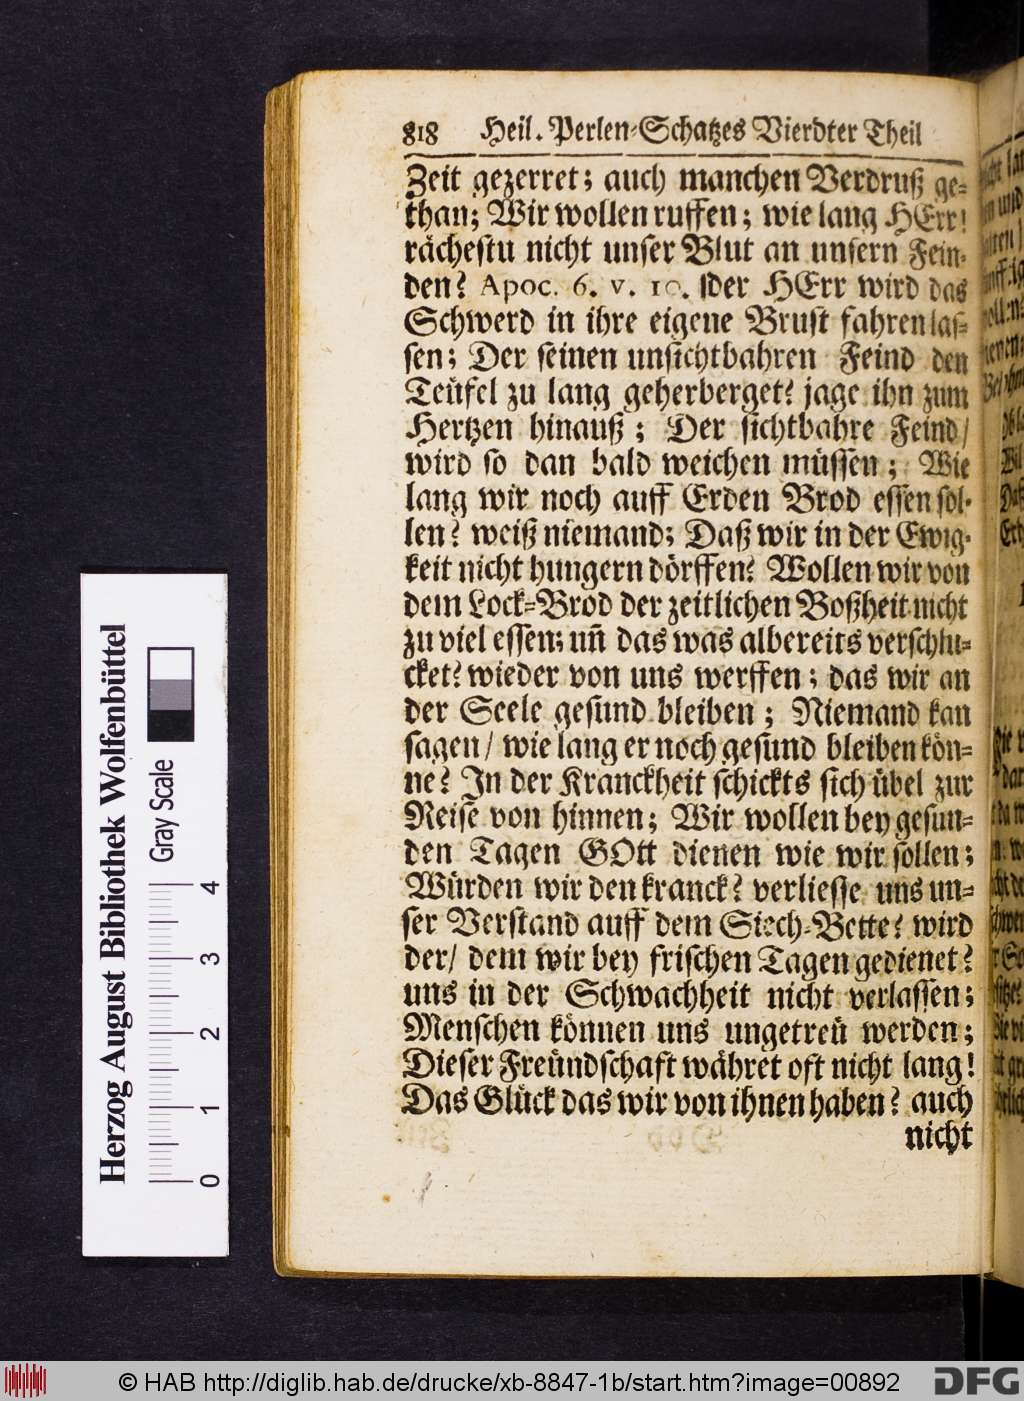 818 Heil. Perlen-Schatzes Vierdter Theil
Zeit gezerret; auch manchen Verdruß ge-
than; Wir wollen ruffen; wie lang HErr!
rächestu nicht unser Blut an unsern Fein-
den? Apoc. 6. v. 10. der HErr wird das
Schwerd in ihre eigene Brust fahren las-
sen; Der seinen unsichtbahren Feind den
Teüfel zu lang geherberget? jage ihn zum
Hertzen hinauß; Der sichtbahre Feind/
wird so dan bald weichen müssen; Wie
lang wir noch auff Erden Brod essen sol-
len? weiß niemand; Daß wir in der Ewig-
keit nicht hungern dörffen? Wollen wir von
dem Lock-Brod der zeitlichen Boßheit nicht
zu viel essen; uñ das was albereits verschlu-
cket? wieder von uns werffen; das wir an
der Seele gesund bleiben; Niemand kan
sagen/ wie lang er noch gesund bleiben kön-
ne? In der Kranckheit schickts sich übel zur
Reise von hinnen; Wir wollen bey gesun-
den Tagen GOtt dienen wie wir sollen;
Würden wir den kranck? verliesse uns un-
ser Verstand auff dem Siech-Bette? wird
der/ dem wir bey frischen Tagen gedienet?
uns in der Schwachheit nicht verlassen;
Menschen können uns ungetreü werden;
Dieser Freündschaft währet oft nicht lang!
Das Glück das wir von ihnen haben? auch
nicht
Herzog August Bibliothek Wolfenbüttel
Gray Scale
0 1 2 3 4
© HAB http://diglib.hab.de/drucke/xb-8847-1b/start.htm?image=00892
DFG